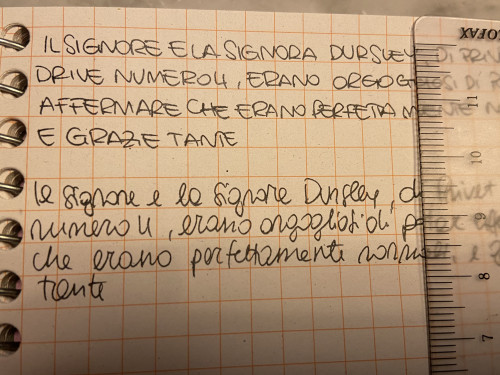 IL SIGNORE E LA SIGNORA DURSLEY DI PRIV
DRIVE NUMERO 4, ERANO ORGOGLIOSI DI P
AFFERMARE CHE ERANO PERFETTAMENTE N
E GRAZIE TANTE
le signore e la signore Dursley, di Privet
numero 4, erano orgogliosi di
che erano perfettamente
tante
FILOFAX
11
10
9
8
7